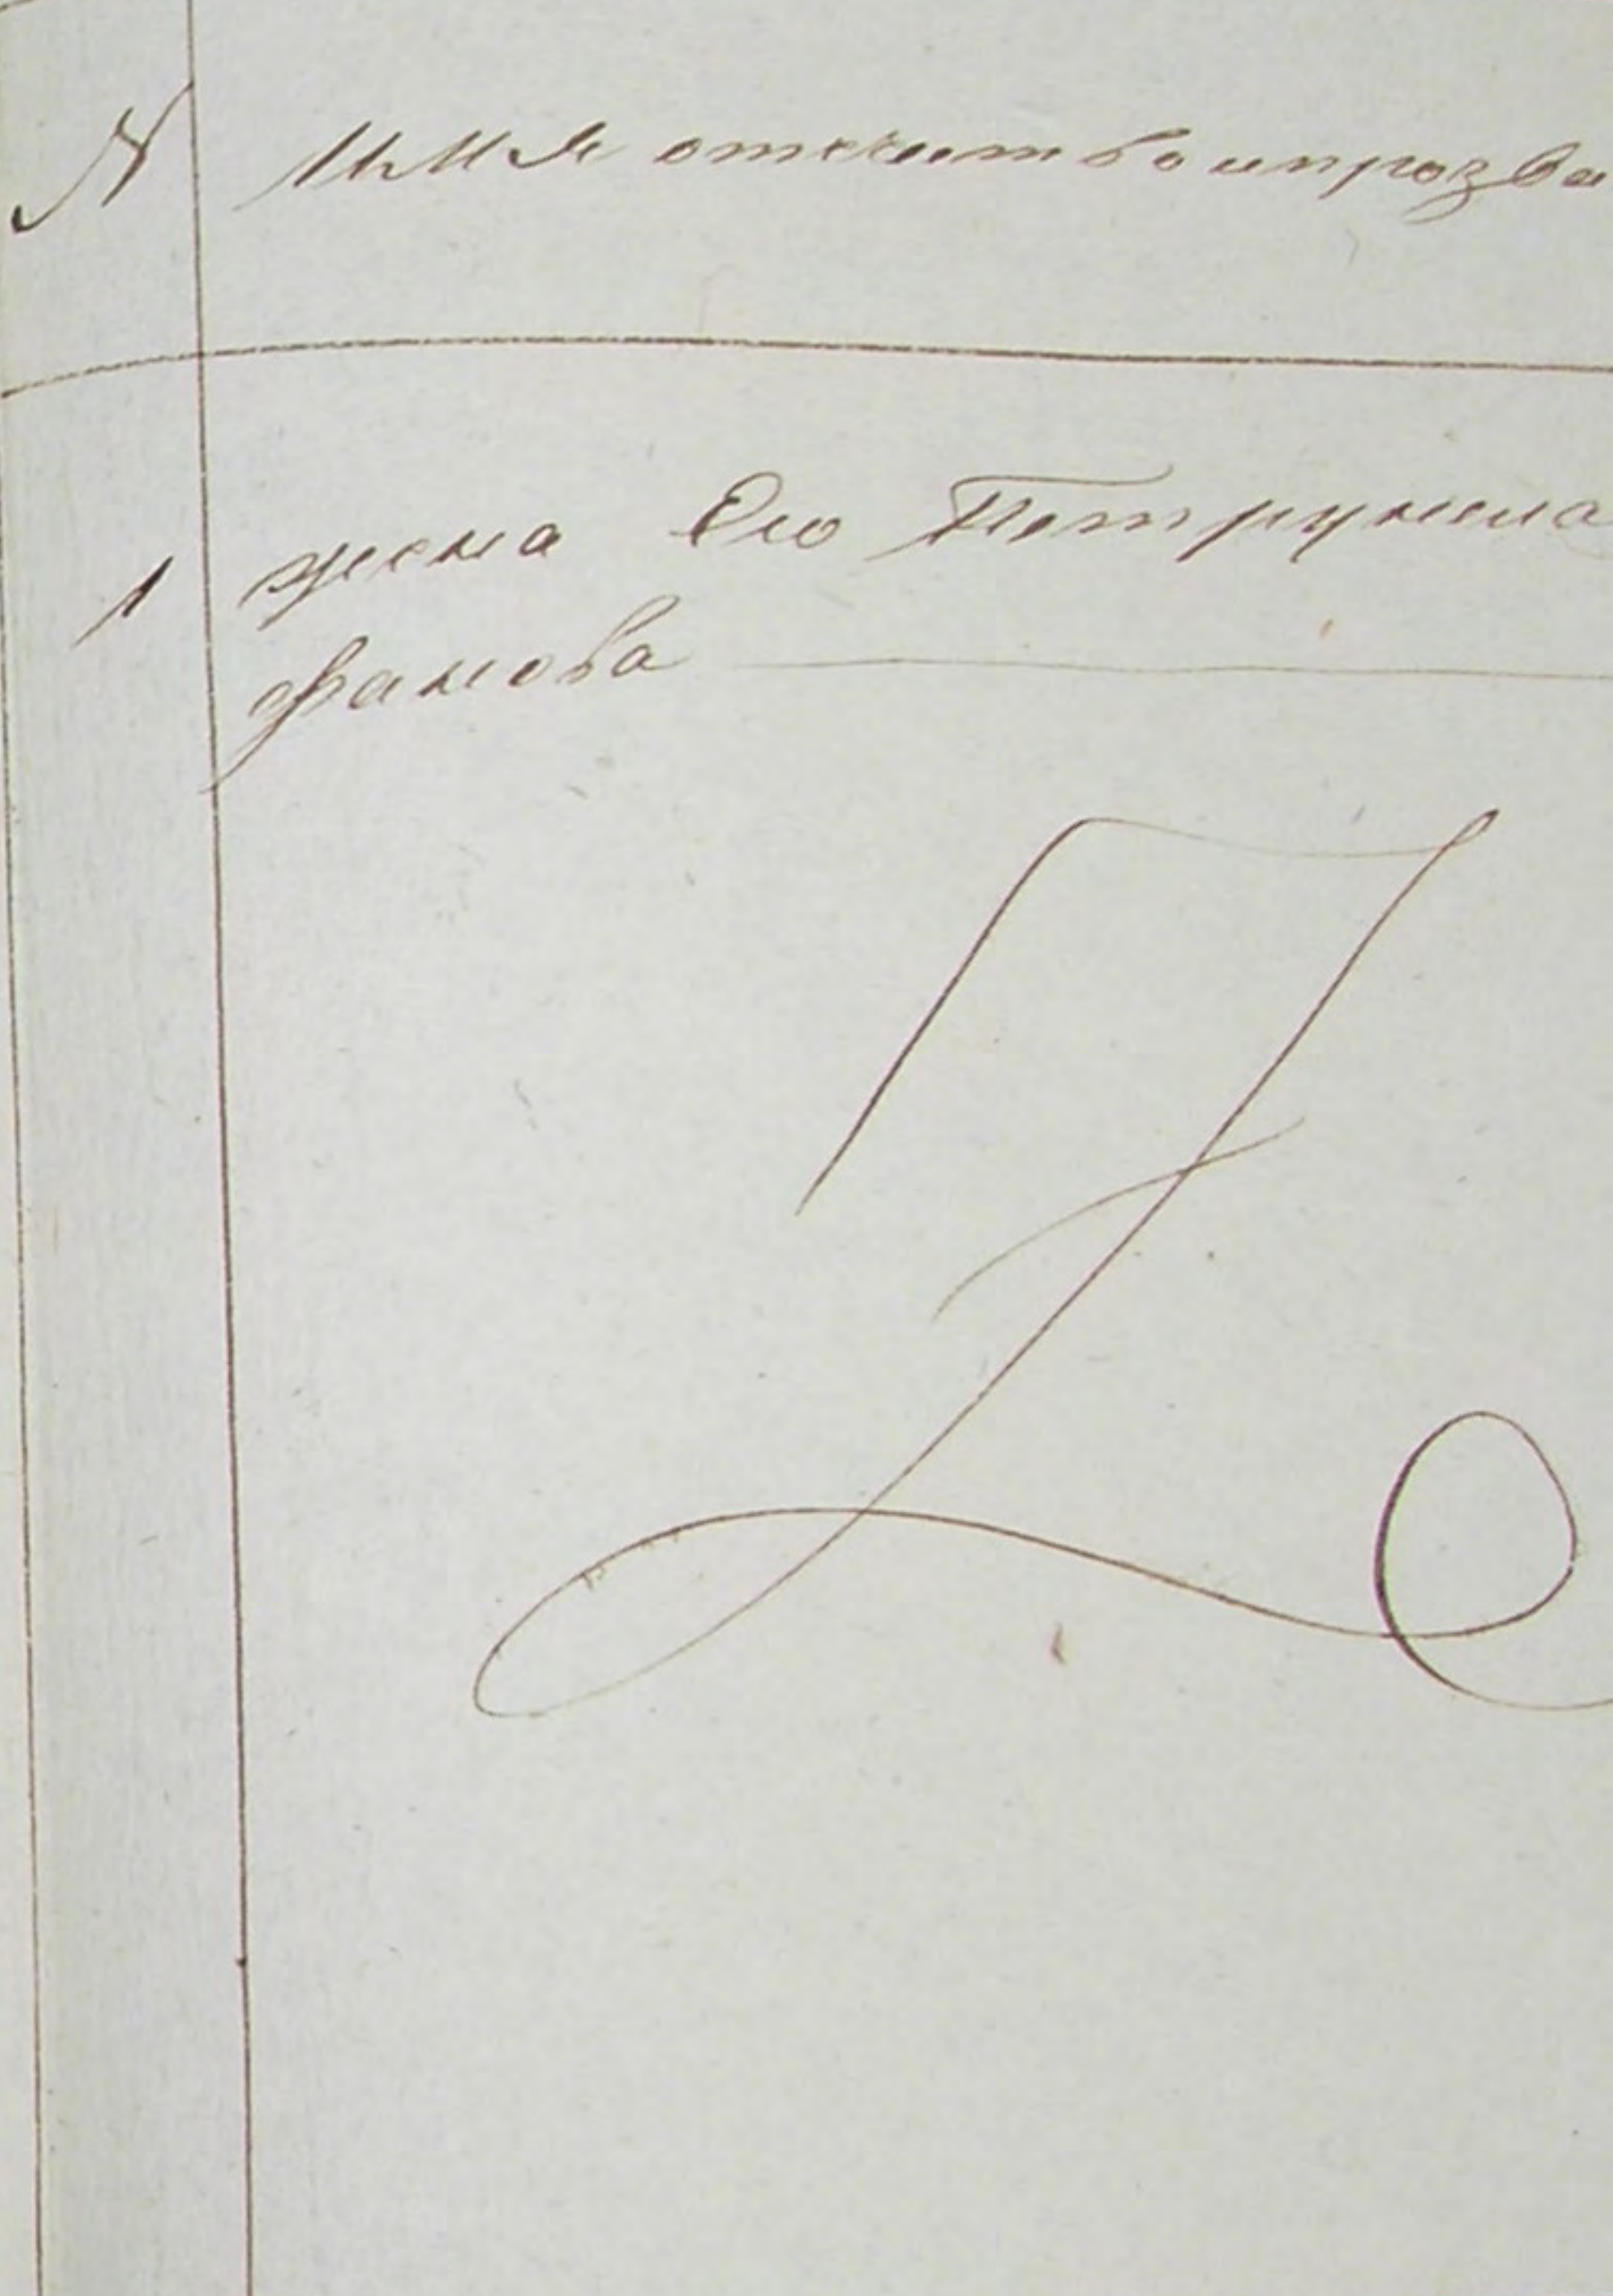 № Имя отечество и прозва
1 жена Его Петрунела
фанова